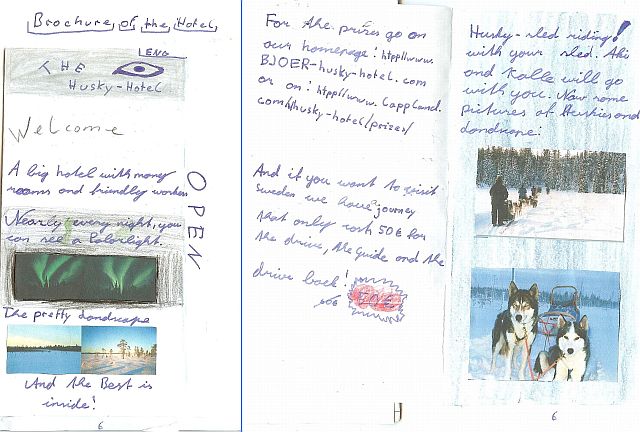 Brochure of the Hotel
LENG
THE
Husky-Hotel
Welcome
OPEN
A big hotel with many
rooms and friendly workers
Nearly every night, you
can see a Polarlight.
The pretty landscape
And the Best is
inside!
6
For the prizes go on
our homepage! http//www.
BJOER-husky-hotel.com
or on! http//www.Lappland.
com/husky-hotel/prizes/
And if you want to visit
Sweden we have a journey
that only cost 50€ for
the drive, the guide and the
drive back!
H
Husky-sled riding!
with your sled. Aki
and Kalle will go
with you. Now some
pictures of Huskies and
Landscape:
6